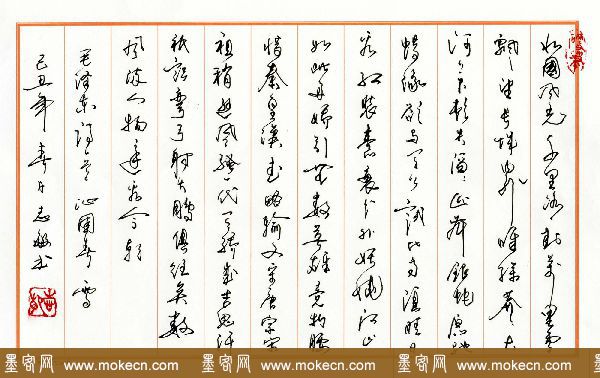 北國風光千里冰封萬里雪
飘望長城内外唯餘莽莽大
河上下顿失滔滔山舞銀蛇原驰
蜡象欲与天公試比高須晴日
看红装素裹分外妖娆江山
如此多娇引无數英雄竞折腰
惜秦皇漢武略输文采唐宗宋
祖稍逊風骚一代天骄成吉思汗
祇識弯弓射大鵰俱往矣數
風流人物還看今朝
毛泽東詞 沁園春 雪
己丑年春月志敏书
墨客网 www.mokecn.com 墨客网 www.mokecn.com 墨客网 www.mokecn.com